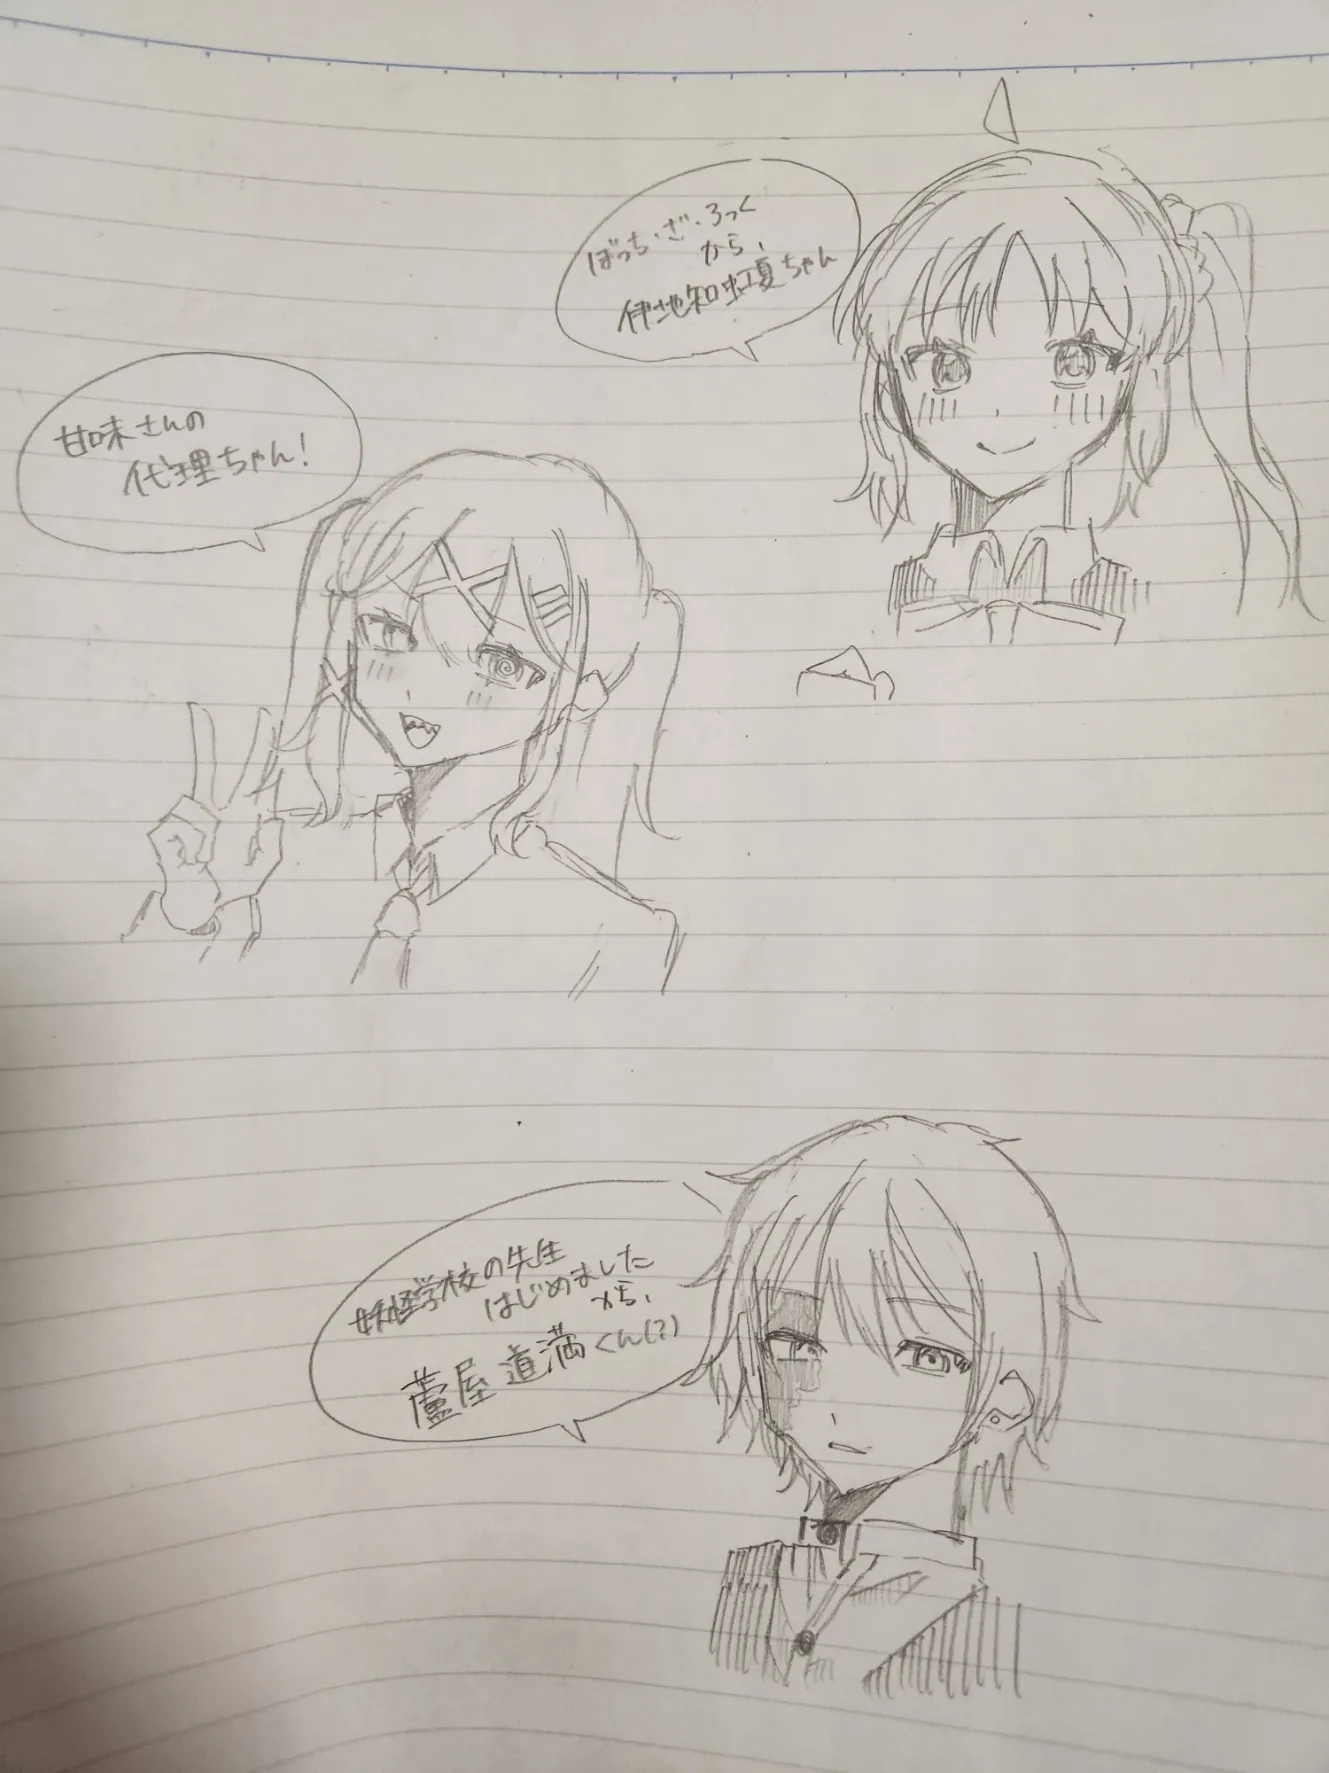 ぼっち・ざ・ろっく
から、
伊地知虹夏ちゃん
甘味さんの
代理ちゃん!
妖怪学校の先生
はじめました
から、
蘆屋道満くん(?)